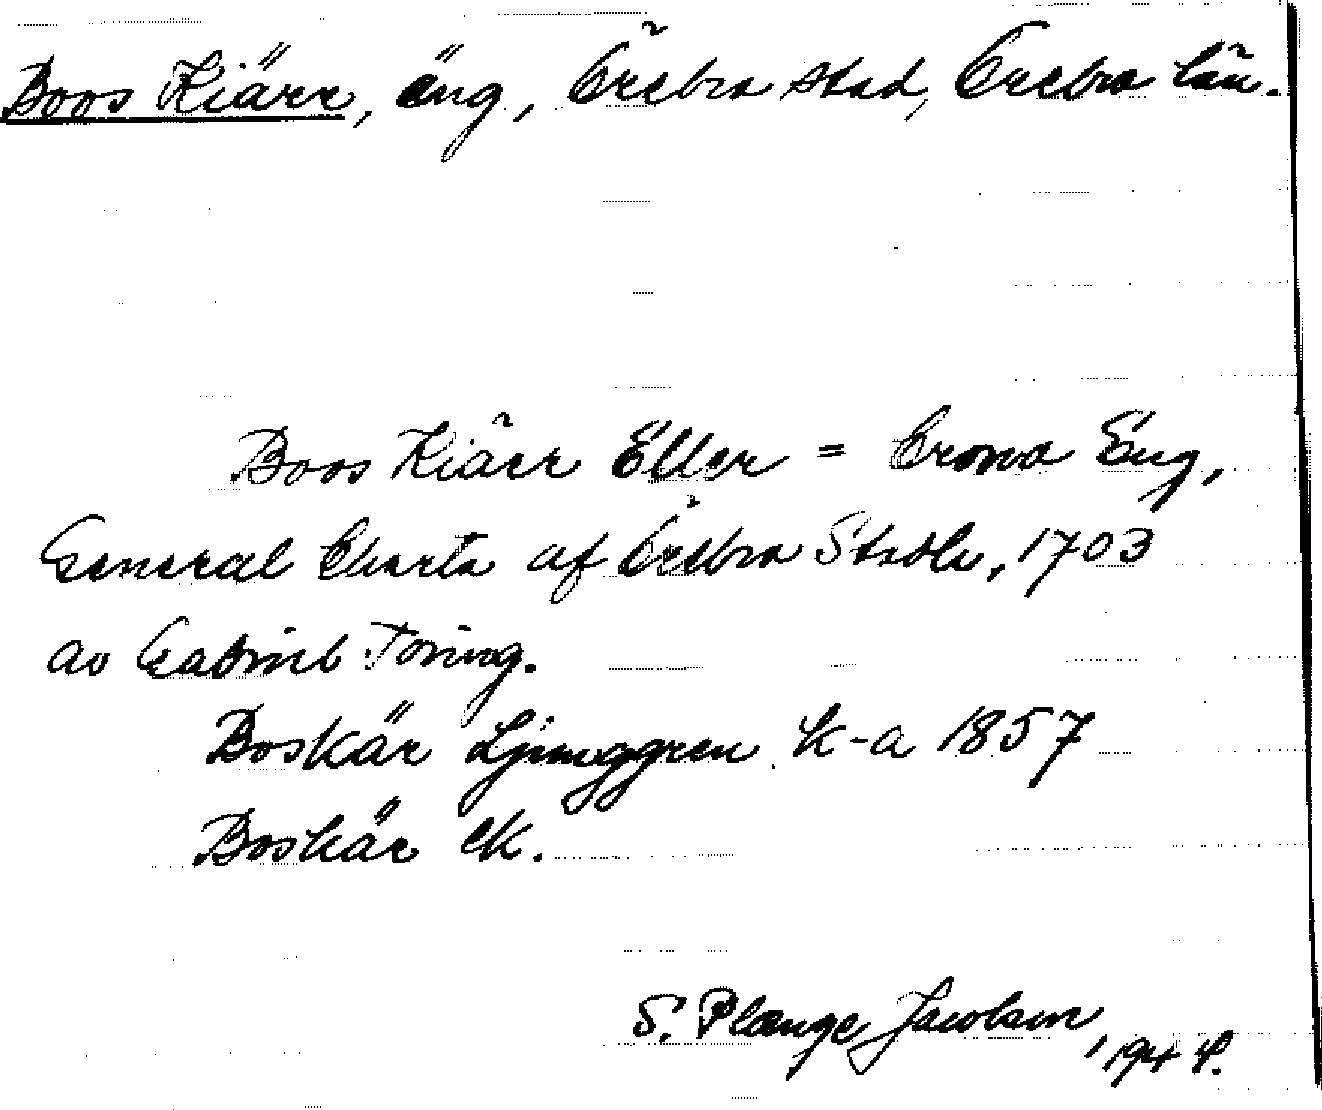 Boos Kiärr, äng, Örebro stad, Örebro län.
Boos Kiärr Eller = Crono Äng,
General Charta af Örebro Stads, 1703
av Gabriel Toring.
Boskär Ljunggren k-a 1857
Boskär ek.
S. Plænge Jacobsen, 1944.